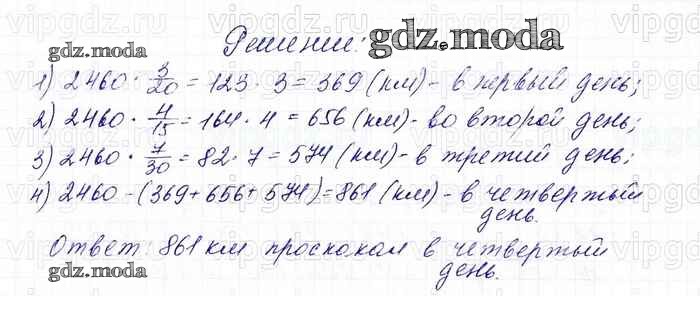 vipgdz.com vipgdz.com vipgdz.com
Решение:
gdz.moda
gdz.moda
1) 2460 · 3/20 = 123 · 3 = 369 (км) - в первый день;
2) 2460 · 4/15 = 164 · 4 = 656 (км) - во второй день;
3) 2460 · 7/30 = 82 · 7 = 574 (км) - в третий день;
4) 2460 - (369 + 656 + 574) = 861 (км) - в четвертый
день.
Ответ: 861 км проскакал в четвертый
день.
gdz.moda